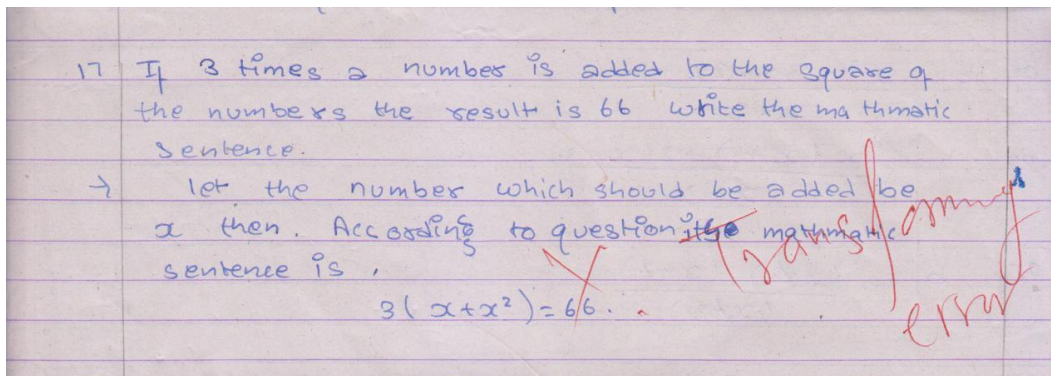 17 If 3 times a number is added to the square of
the numbers the result is 66 write the ma thmatic
sentence.
→ let the number which should be added be
x then. According to question its mathmatic
sentence is,
3(x+x²)=66.
Transforming
error